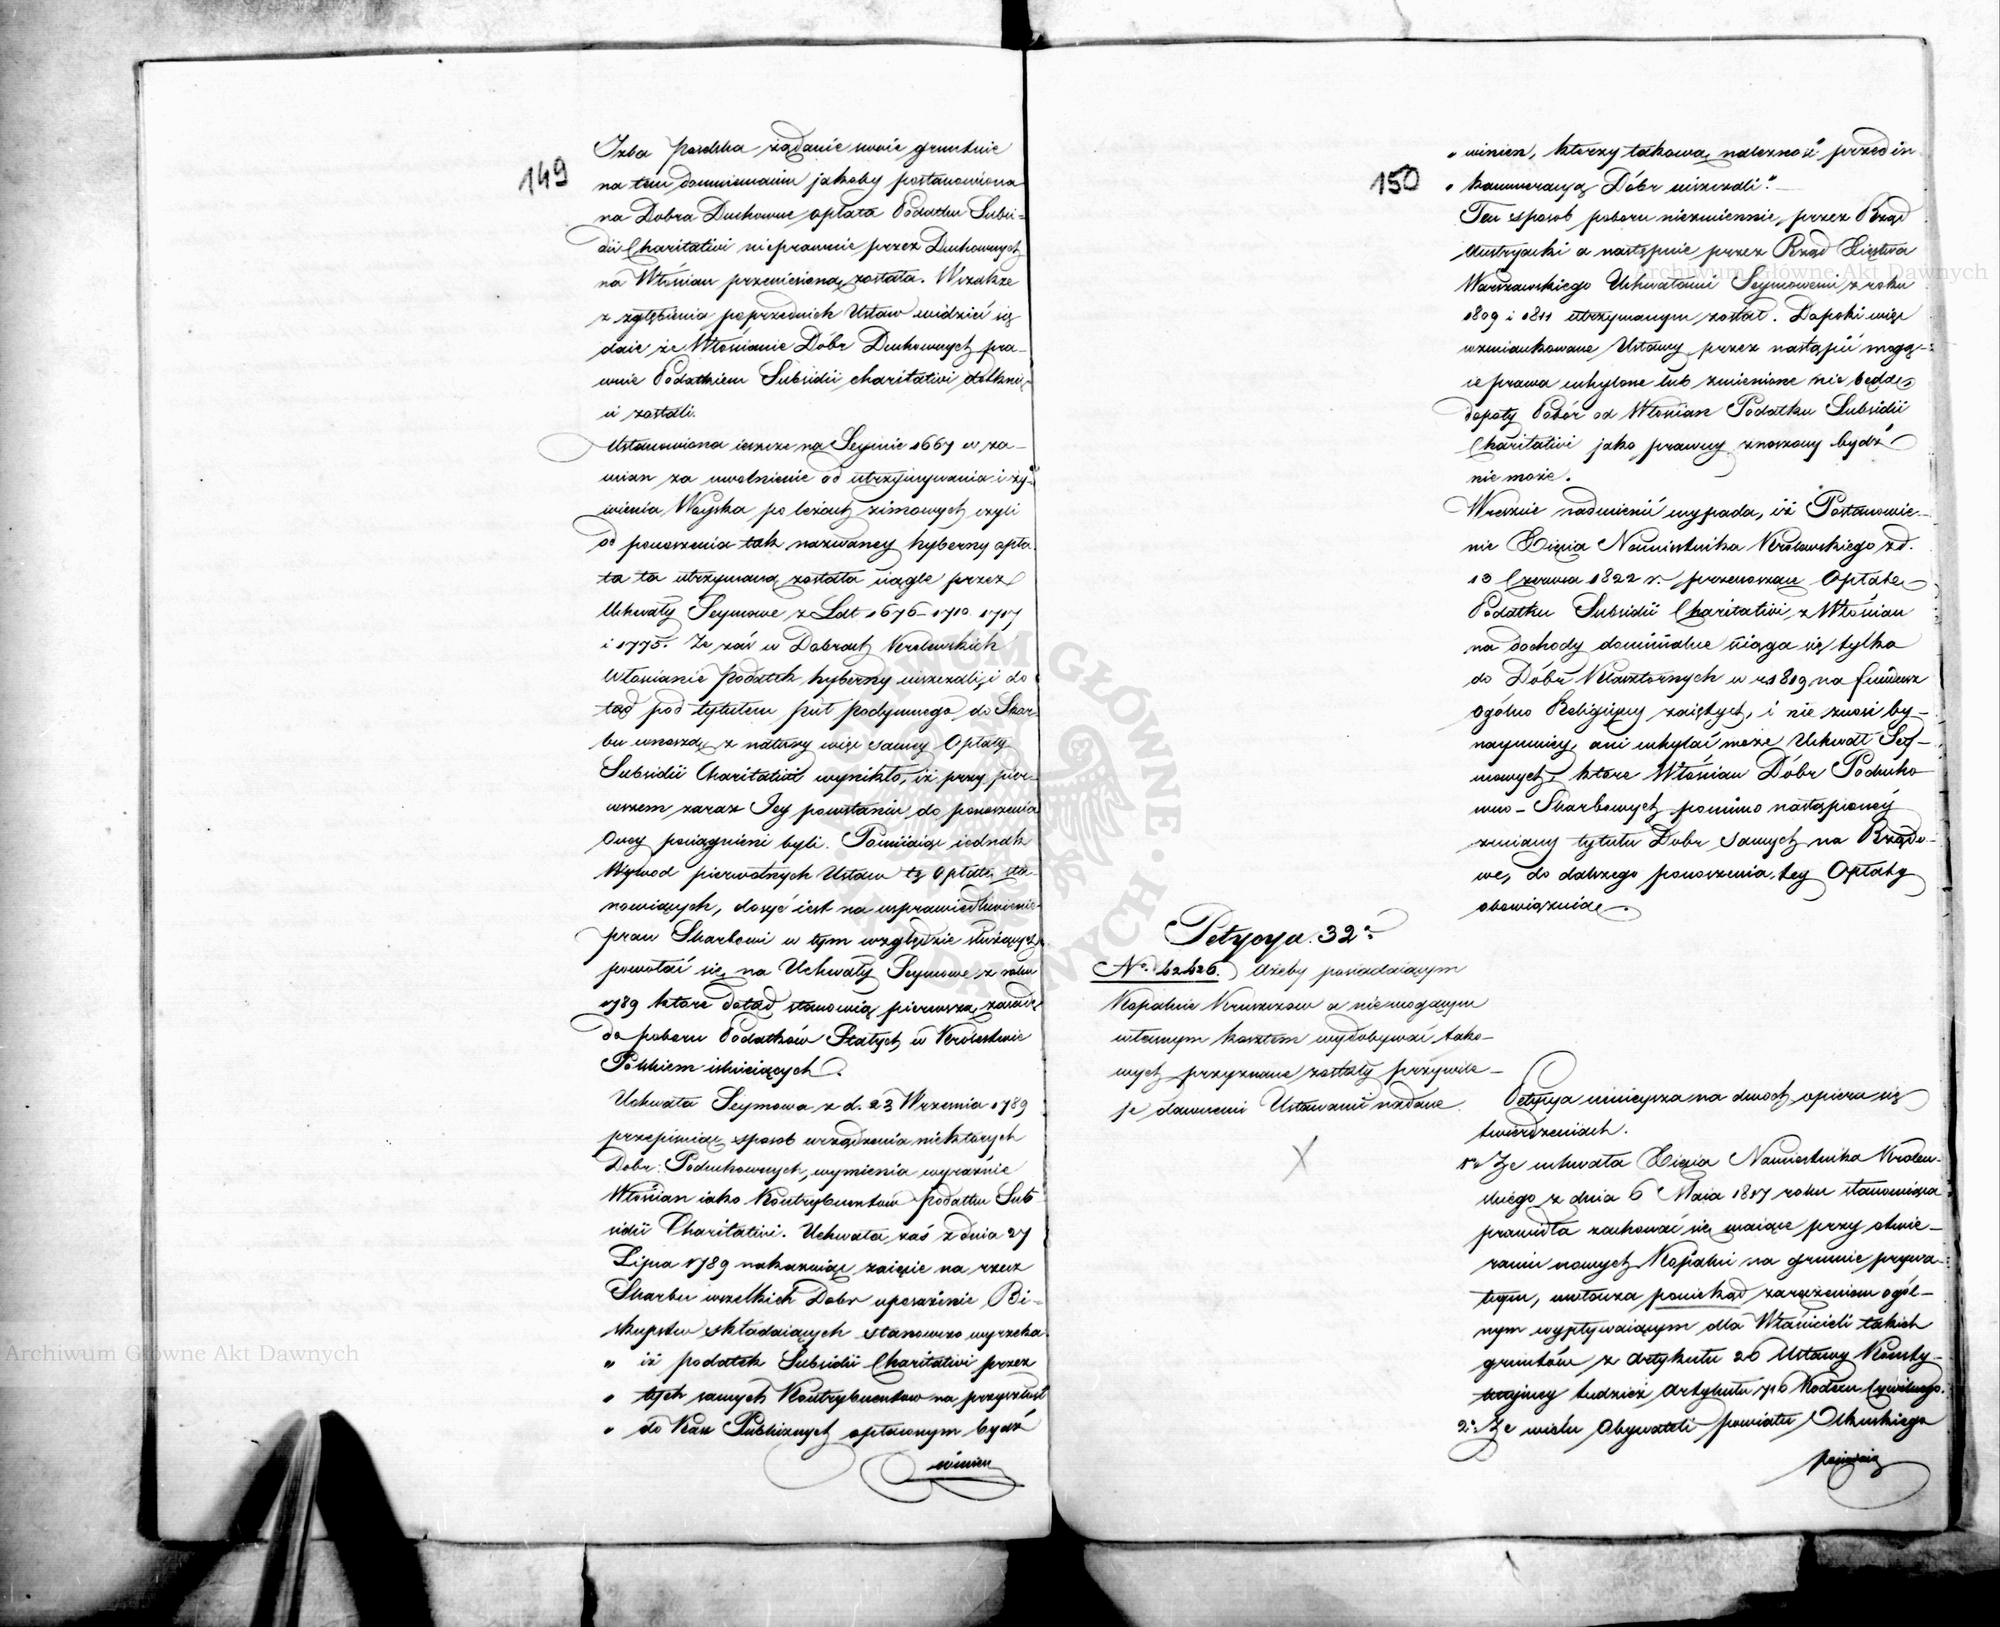 149
Izba Poselska żądanie swoie gruntuie
na tém domniemaniu jakoby postanowiona
na Dobra Duchowne opłata Podatku Subsi-
dii Charitativi nieprawnie przez Duchownych
na Włościan przeniesioną została. Wszakże
z zgłębienia poprzednich Ustaw widzieć się
daie że Włościanie Dóbr Duchownych pra-
wnie Podatkiem Subsidii charitativi dotknię-
ci zostali.
Ustanowiona ieszcze na Seymie 1667 w za-
mian za uwolnienie od utrzymywania i ży-
wienia Woyska po leżach zimowych czyli
od ponoszenia tak nazwaney hyberny opła-
ta ta utrzymaną została ciągle przez
Uchwały Seymowe z Lat 1676 - 1710. 1717
i 1775. Że zaś w Dobrach Królewskich
Włościanie podatek hyberny uiszczali, i do
tąd pod tytułem puł podymnego do Skar-
bu wnoszą, z natury więc samey Opłaty
Subsidii Charitativi wynikło, iż przy pier-
wszem zaraz Jey powstaniu do ponoszenia
Oney pociągnieni byli. Pomiiaiąc iednak
Wywod pierwotnych Ustaw tę Opłatę sta-
nowiących, dosyć iest na usprawiedliwienie
praw Skarbowi w tym względzie służących
powołać się na Uchwały Seymowe z roku
1789 które dotąd stanowią pierwszą zasadę
do poboru Podatków Stałych w Królestwie
Polskiem istnieiących.
Uchwała Seymowa z d. 23 Września 1789
przepisuiąc sposob urządzenia niektórych
Dobr Poduchownych, wymienia wyraźnie
Włościan iako Kontrybuentów podatku Sub-
sidii Charitativi. Uchwała zaś z dnia 27
Lipca 1789 nakazuiąc zaięcie na rzecz
Skarbu wszelkich Dobr uposażenie Bi-
skupstw składaiących stanowczo wyrzeka
„ iż podatek Subsidii Charitativi przez
„ tych samych Kontrybuentow na przyszłość
„ do Kass Publicznych opłaconym bydź
winien
150
„ winien, którzy takową należność przed in-
„ kammeracyą Dóbr uiszczali."
Ten sposob poboru niezmiennie, przez Rząd
Austryacki a następnie przez Rząd Xięstwa
Warszawskiego Uchwałami Seymowemi z roku
1809 i 1811 utrzymanym został. Dopoki więc
wzmiankowane Ustawy przez nastąpić mogą-
ce prawa uchylone lub zmienione nie będą,
dopoty Pobór od Włościan Podatku Subsidii
Charitativi jako prawny znoszony bydź
nie może.
Wreszcie nadmienić wypada, iż Postanowie-
nie Xięcia Namiestnika Królewskiego z d.
13 Czerwca 1822 r. przenoszące Opłatę
Podatku Subsidii Charitativi z Włościan
na dochody dominialne ściąga się tylko
do Dóbr Klasztornych w r. 1819 na fundusz
ogólno Religiyny zaiętych, i nie znosi by-
naymniey, ani uchylać może Uchwał Sey-
mowych, które Włościan Dóbr Poducho-
wno - Skarbowych pomimo nastąpioney
zmiany tytułu Dobr samych na Rządo-
we, do dalszego ponoszenia tey Opłaty
obowiązuią.
Petycya 32a
No 42426. Ażeby posiadaiącym
Kopalnie Kruszców a niemogącym
własnym kosztem wydobywać tako-
wych przyznane zostały przywile-
je dawnemi Ustawami nadane
X
Petycya ninieysza na dwoch opiera się
twierdzeniach.
1o Że uchwała Xięcia Namiestnika Królew-
skiego z dnia 6 Maia 1817 roku stanowiąca
prawidła zachować się maiące przy otwie-
raniu nowych Kopalni na gruncie prywa-
tnym, uwłacza poniekąd zaręczeniom ogól-
nym wypływaiącym dla Właścicieli takich
gruntów z Artykułu 26 Ustawy Konsty-
tucyjney tudzież Artykułu 716 Kodexu Cywilnego.
2o Że wielu Obywateli powiatu Olkuskiego